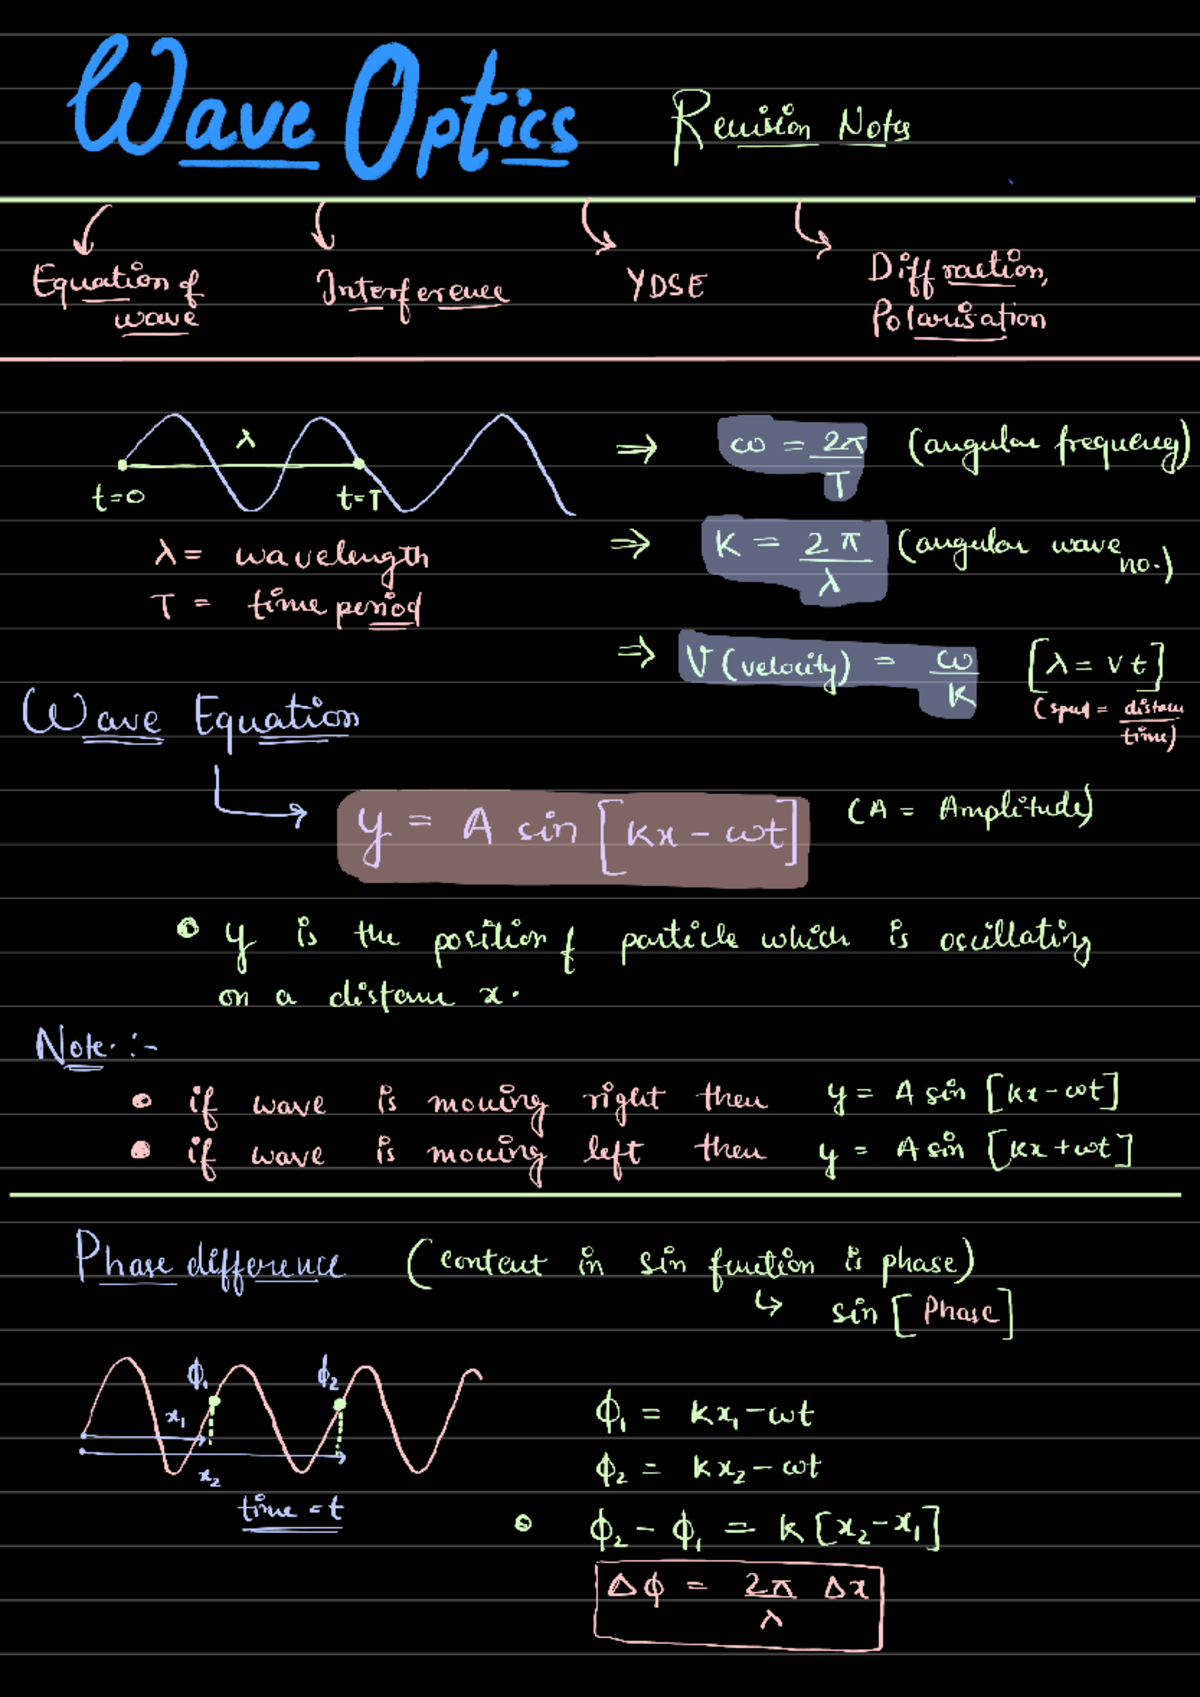 Wave Optics Revision Notes
Equation of wave
Interference
YDSE
Diffraction, Polarisation
λ
t=0 t=T
λ = wavelength
T = time period
⇒ ω = 2π/T (angular frequency)
⇒ K = 2π/λ (angular wave no.)
⇒ V (velocity) = ω/K [λ = vt]
(speed = distance/time)
Wave Equation
y = A sin [kx - ωt] (A = Amplitude)
• y is the position of particle which is oscillating
on a distance x.
Note :-
• if wave is moving right then y = A sin [kx - ωt]
• if wave is moving left then y = A sin [kx + ωt]
Phase difference (content in sin function is phase)
↳ sin [Phase]
ϕ₁ ϕ₂
x₁
x₂
time = t
ϕ₁ = kx₁ - ωt
ϕ₂ = kx₂ - ωt
• ϕ₂ - ϕ₁ = k [x₂ - x₁]
Δϕ = 2π/λ Δx